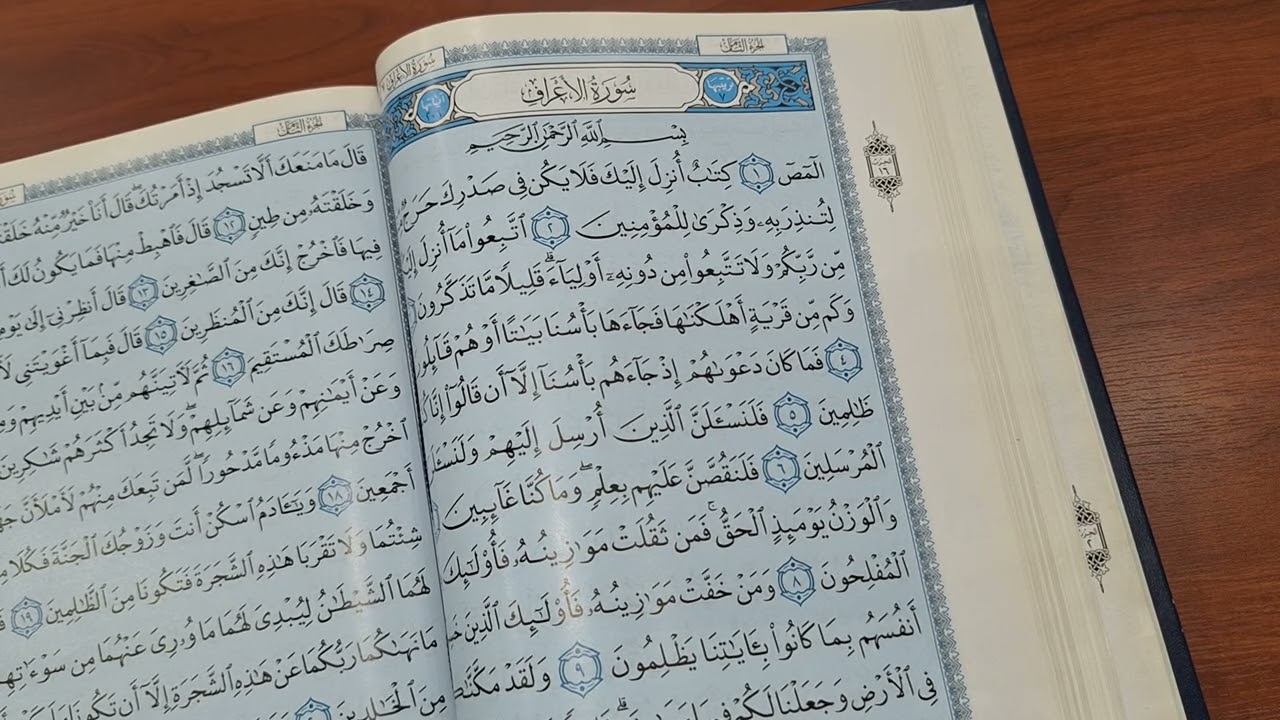 الجزء الثامن
سُورَةُ الأَعْرَافِ
ترتيبها
آياتها
بِسْمِ ٱللَّهِ ٱلرَّحْمَٰنِ ٱلرَّحِيمِ
الٓمٓصٓ ١ كِتَٰبٌ أُنزِلَ إِلَيْكَ فَلَا يَكُن فِى صَدْرِكَ حَرَجٌ
لِتُنذِرَ بِهِۦ وَذِكْرَىٰ لِلْمُؤْمِنِينَ ٢ ٱتَّبِعُوا۟ مَآ أُنزِلَ
مِّن رَّبِّكُمْ وَلَا تَتَّبِعُوا۟ مِن دُونِهِۦٓ أَوْلِيَآءَ ۗ قَلِيلًا مَّا تَذَكَّرُونَ
وَكَم مِّن قَرْيَةٍ أَهْلَكْنَٰهَا فَجَآءَهَا بَأْسُنَا بَيَٰتًا أَوْ هُمْ
٤ فَمَا كَانَ دَعْوَىٰهُمْ إِذْ جَآءَهُم بَأْسُنَآ إِلَّآ أَن قَالُوٓا۟ إِنَّا
ظَٰلِمِينَ ٥ فَلَنَسْـَٔلَنَّ ٱلَّذِينَ أُرْسِلَ إِلَيْهِمْ
ٱلْمُرْسَلِينَ ٦ فَلَنَقُصَّنَّ عَلَيْهِم بِعِلْمٍ ۖ وَمَا كُنَّا غَآئِبِينَ
وَٱلْوَزْنُ يَوْمَئِذٍ ٱلْحَقُّ ۚ فَمَن ثَقُلَتْ مَوَٰزِينُهُۥ فَأُو۟لَٰٓئِكَ
ٱلْمُفْلِحُونَ ٨ وَمَنْ خَفَّتْ مَوَٰزِينُهُۥ فَأُو۟لَٰٓئِكَ ٱلَّذِينَ
أَنفُسَهُم بِمَا كَانُوا۟ بِـَٔايَٰتِنَا يَظْلِمُونَ ٩ وَلَقَدْ
فِى ٱلْأَرْضِ وَجَعَلْنَا لَكُمْ
سُورَةُ الأَعْرَافِ
الجزء الثامن
قَالَ مَا مَنَعَكَ أَلَّا تَسْجُدَ إِذْ أَمَرْتُكَ ۖ قَالَ أَنَا۠ خَيْرٌ مِّنْهُ
وَخَلَقْتَهُۥ مِن طِينٍ ١٢ قَالَ فَٱهْبِطْ مِنْهَا فَمَا يَكُونُ لَكَ
فِيهَا فَٱخْرُجْ إِنَّكَ مِنَ ٱلصَّٰغِرِينَ ١٣ قَالَ أَنظِرْنِىٓ إِلَىٰ
١٤ قَالَ إِنَّكَ مِنَ ٱلْمُنظَرِينَ ١٥ قَالَ فَبِمَآ أَغْوَيْتَنِى
صِرَٰطَكَ ٱلْمُسْتَقِيمَ ١٦ ثُمَّ لَـَٔاتِيَنَّهُم مِّنۢ بَيْنِ أَيْدِيهِمْ
وَعَنْ أَيْمَٰنِهِمْ وَعَن شَمَآئِلِهِمْ ۖ وَلَا تَجِدُ أَكْثَرَهُمْ شَٰكِرِينَ
ٱخْرُجْ مِنْهَا مَذْءُومًا مَّدْحُورًا ۖ لَّمَن تَبِعَكَ مِنْهُمْ لَأَمْلَأَنَّ
أَجْمَعِينَ ١٨ وَيَٰٓـَٔادَمُ ٱسْكُنْ أَنتَ وَزَوْجُكَ ٱلْجَنَّةَ فَكُلَا
شِئْتُمَا وَلَا تَقْرَبَا هَٰذِهِ ٱلشَّجَرَةَ فَتَكُونَا مِنَ ٱلظَّٰلِمِينَ ١٩
لَهُمَا ٱلشَّيْطَٰنُ لِيُبْدِىَ لَهُمَا مَا وُۥرِىَ عَنْهُمَا مِن سَوْءَٰتِهِمَا
مَا نَهَىٰكُمَا رَبُّكُمَا عَنْ هَٰذِهِ ٱلشَّجَرَةِ إِلَّآ أَن تَكُونَا
مِنَ ٱلْخَٰلِدِينَ